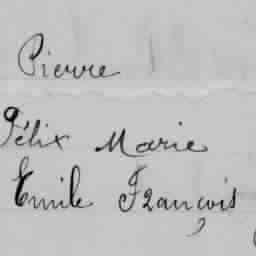 Pierre
Félix Marie
Emile François